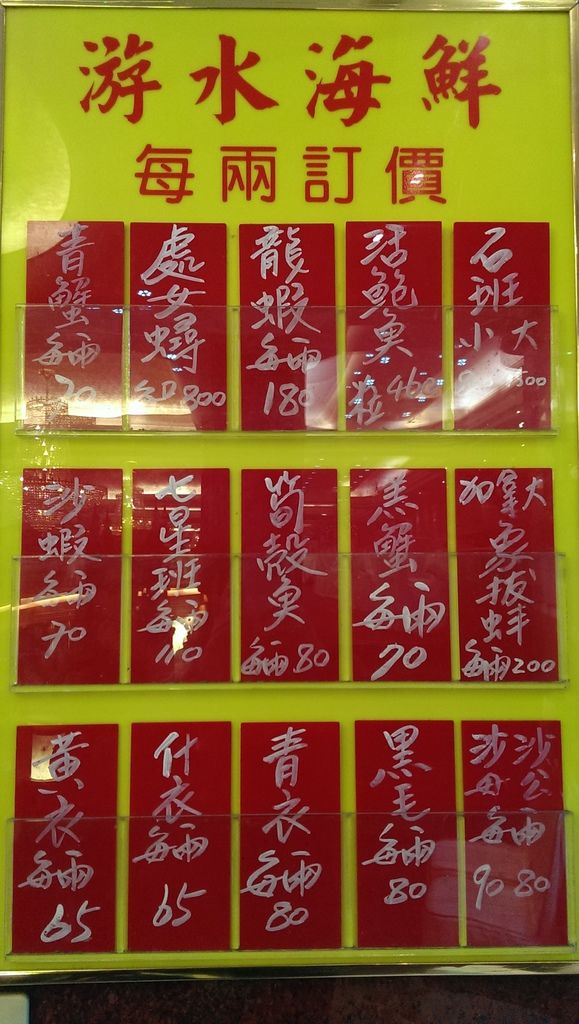 游水海鮮
每兩訂價
青蟹每兩70
處女蟳每only800
龍蝦每兩180
活鮑魚粒460
石班小大300
沙蝦每兩70
七星班每兩110
筍殼魚每兩80
羔蟹每兩90
加拿大象拔蚌每兩200
黃衣每兩65
什衣每兩65
青衣每兩80
黑毛每兩80
沙公沙母每兩80 90